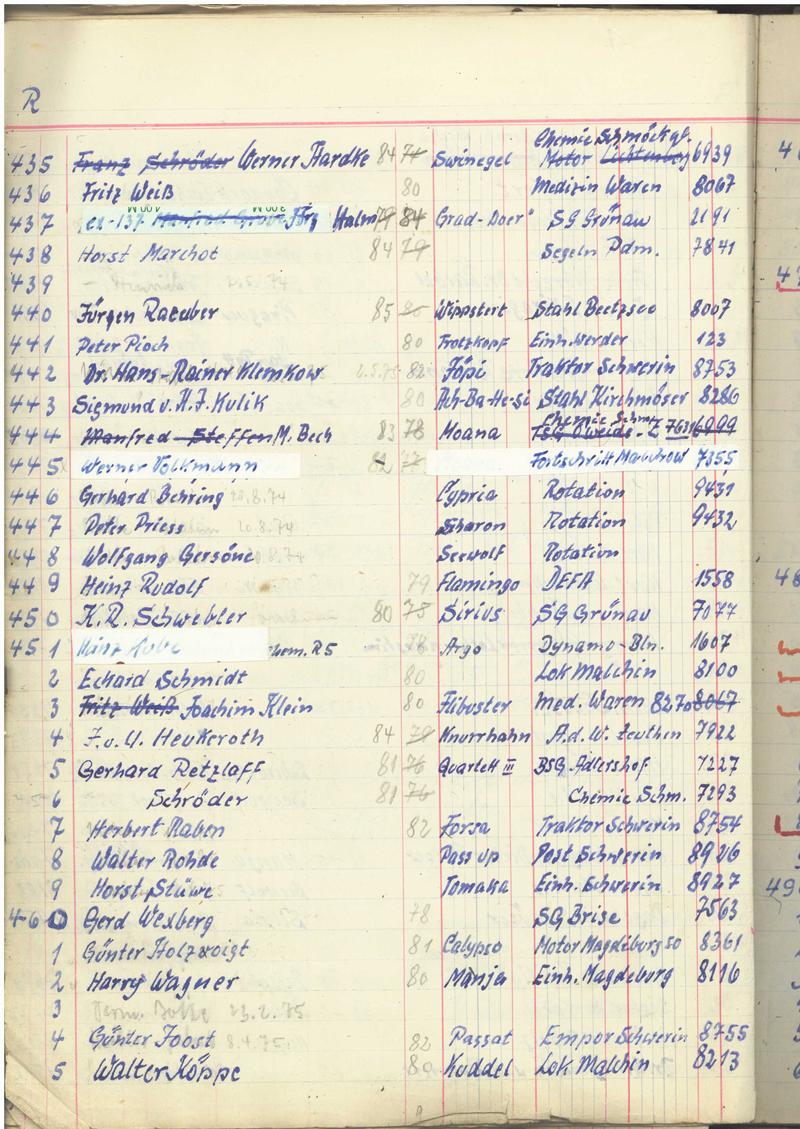 R
Chemie Schmöckw.
435 Franz Schröder Werner Hardke 84 74 Swinegel Motor Lichtenberg 6939
436 Fritz Weiß 80 Medizin Waren 8067
437 ex-137 Jörg Halm 79 84 Grad-Doer" SG Grünau 2191
438 Horst Marchot 84 79 Segeln Pdm. 7841
439
440 Jürgen Raeuber 85 Wippstert Stahl Beetzsee 8007
441 Peter Pioch 80 Trotzkopf Einh. Werder 123
442 Dr. Hans-Rainer Klemkow 2.5.75 82 Föpi Traktor Schwerin 8753
443 Sigmund u. H.J. Kulik 80 Ach-Ba-He-si Stahl Kirchmöser 8286
444 Manfred Steffen M. Bech 83 78 Moana Chemie Schm. 6999
445 Werner Volkmann 82 77 Fortschritt Malchow 7355
446 Gerhard Behring .8.74 Cypria Rotation 9431
447 Peter Priess 20.8.74 Sharon Rotation 9432
448 Wolfgang Gersöne .8.74 Seewolf Rotation
449 Heinz Rudolf 79 Flamingo DEFA 1558
450 K.R. Schwebler 80 78 Sirius SG Grünau 7077
451 chem. R5 78 Argo Dynamo-Bln. 1607
2 Eckard Schmidt 80 Lok Malchin 8100
3 Fritz Weiß Joachim Klein 80 Flibuster Med. Waren 8270 8067
4 J. u. U. Heukeroth 84 79 Knurrhahn A.d.W. Zeuthen 7922
5 Gerhard Retzlaff 81 76 Quartett III BSG Adlershof 7227
6 Schröder 81 76 Chemie Schm. 7293
7 Herbert Raben 82 Forsa Traktor Schwerin 8754
8 Walter Rohde Pass up Post Schwerin 8926
9 Horst Stüwe Tomaka Einh. Schwerin 8927
460 Gerd Wexberg 78 SG Brise 7563
1 Günter Holzvoigt 81 Calypso Motor Magdeburg so 8361
2 Harry Wagner 80 Manja Einh. Magdeburg 8116
3 23.2.75
4 Günter Joost 8.4.75 82 Passat Empor Schwerin 8755
5 Walter Köppe 80 Kuddel Lok Malchin 8213